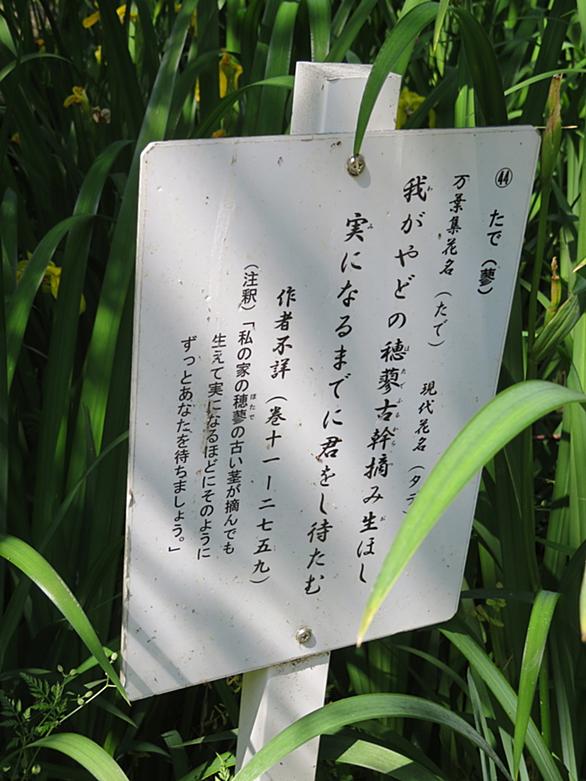 ㊹
たで（蓼）
万葉集花名（たで） 現代花名（タ
我がやどの穂蓼古幹摘み生ほし
実になるまでに君をし待たむ
作者不詳（巻十一ー二七五九）
（注釈）「私の家の穂蓼の古い茎が摘んでも
生えて実になるほどにそのように
ずっとあなたを待ちましょう。」